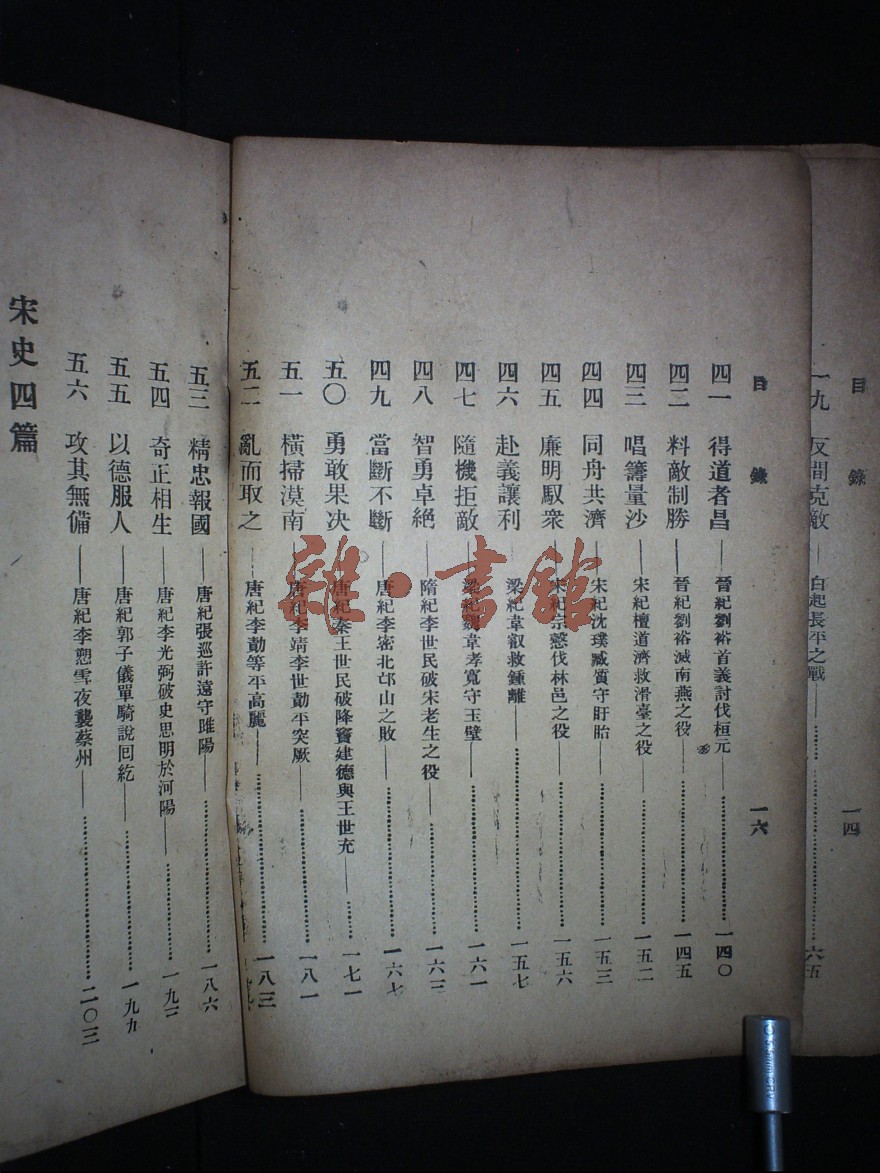 目錄 一四
一九 反間克敵——白起長平之戰——……六五
目錄 一六
四一 得道者昌——晉紀劉裕首義討伐桓元——……一四〇
四二 料敵制勝——晉紀劉裕滅南燕之役——……一四五
四三 唱籌量沙——宋紀檀道濟救滑臺之役——……一五二
四四 同舟共濟——宋紀沈璞臧質守盱眙——……一五三
四五 廉明馭衆——宋紀宗慤伐林邑之役——……一五六
四六 赴義讓利——梁紀韋叡救鍾離——……一五七
四七 隨機拒敵——梁紀韋孝寬守玉壁——……一六一
四八 智勇卓絕——隋紀李世民破宋老生之役——……一六三
四九 當斷不斷——唐紀李密北邙山之敗——……一六七
五〇 勇敢果决——唐紀秦王世民破降竇建德與王世充——……一七一
五一 橫掃漠南——唐紀李靖李世勣平突厥——……一八一
五二 亂而取之——唐紀李勣等平高麗——……一八三
五三 精忠報國——唐紀張巡許遠守睢陽——……一八六
五四 奇正相生——唐紀李光弼破史思明於河陽——……一九三
五五 以德服人——唐紀郭子儀單騎說囘紇——……一九九
五六 攻其無備——唐紀李愬雪夜襲蔡州——……二〇三
宋史四篇
雜·書館